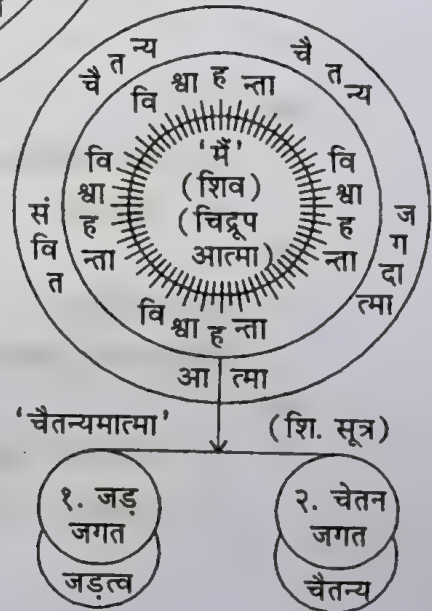 चैतन्य
चैतन्य
विश्वाहन्ता
विश्वाहन्ता
विश्वाहन्ता
'मैं'
(शिव)
(चिद्रूप
आत्मा)
संवित
जगदात्मा
विश्वाहन्ता
आत्मा
'चैतन्यमात्मा' (शि. सूत्र)
१. जड़
जगत
जड़त्व
२. चेतन
जगत
चैतन्य